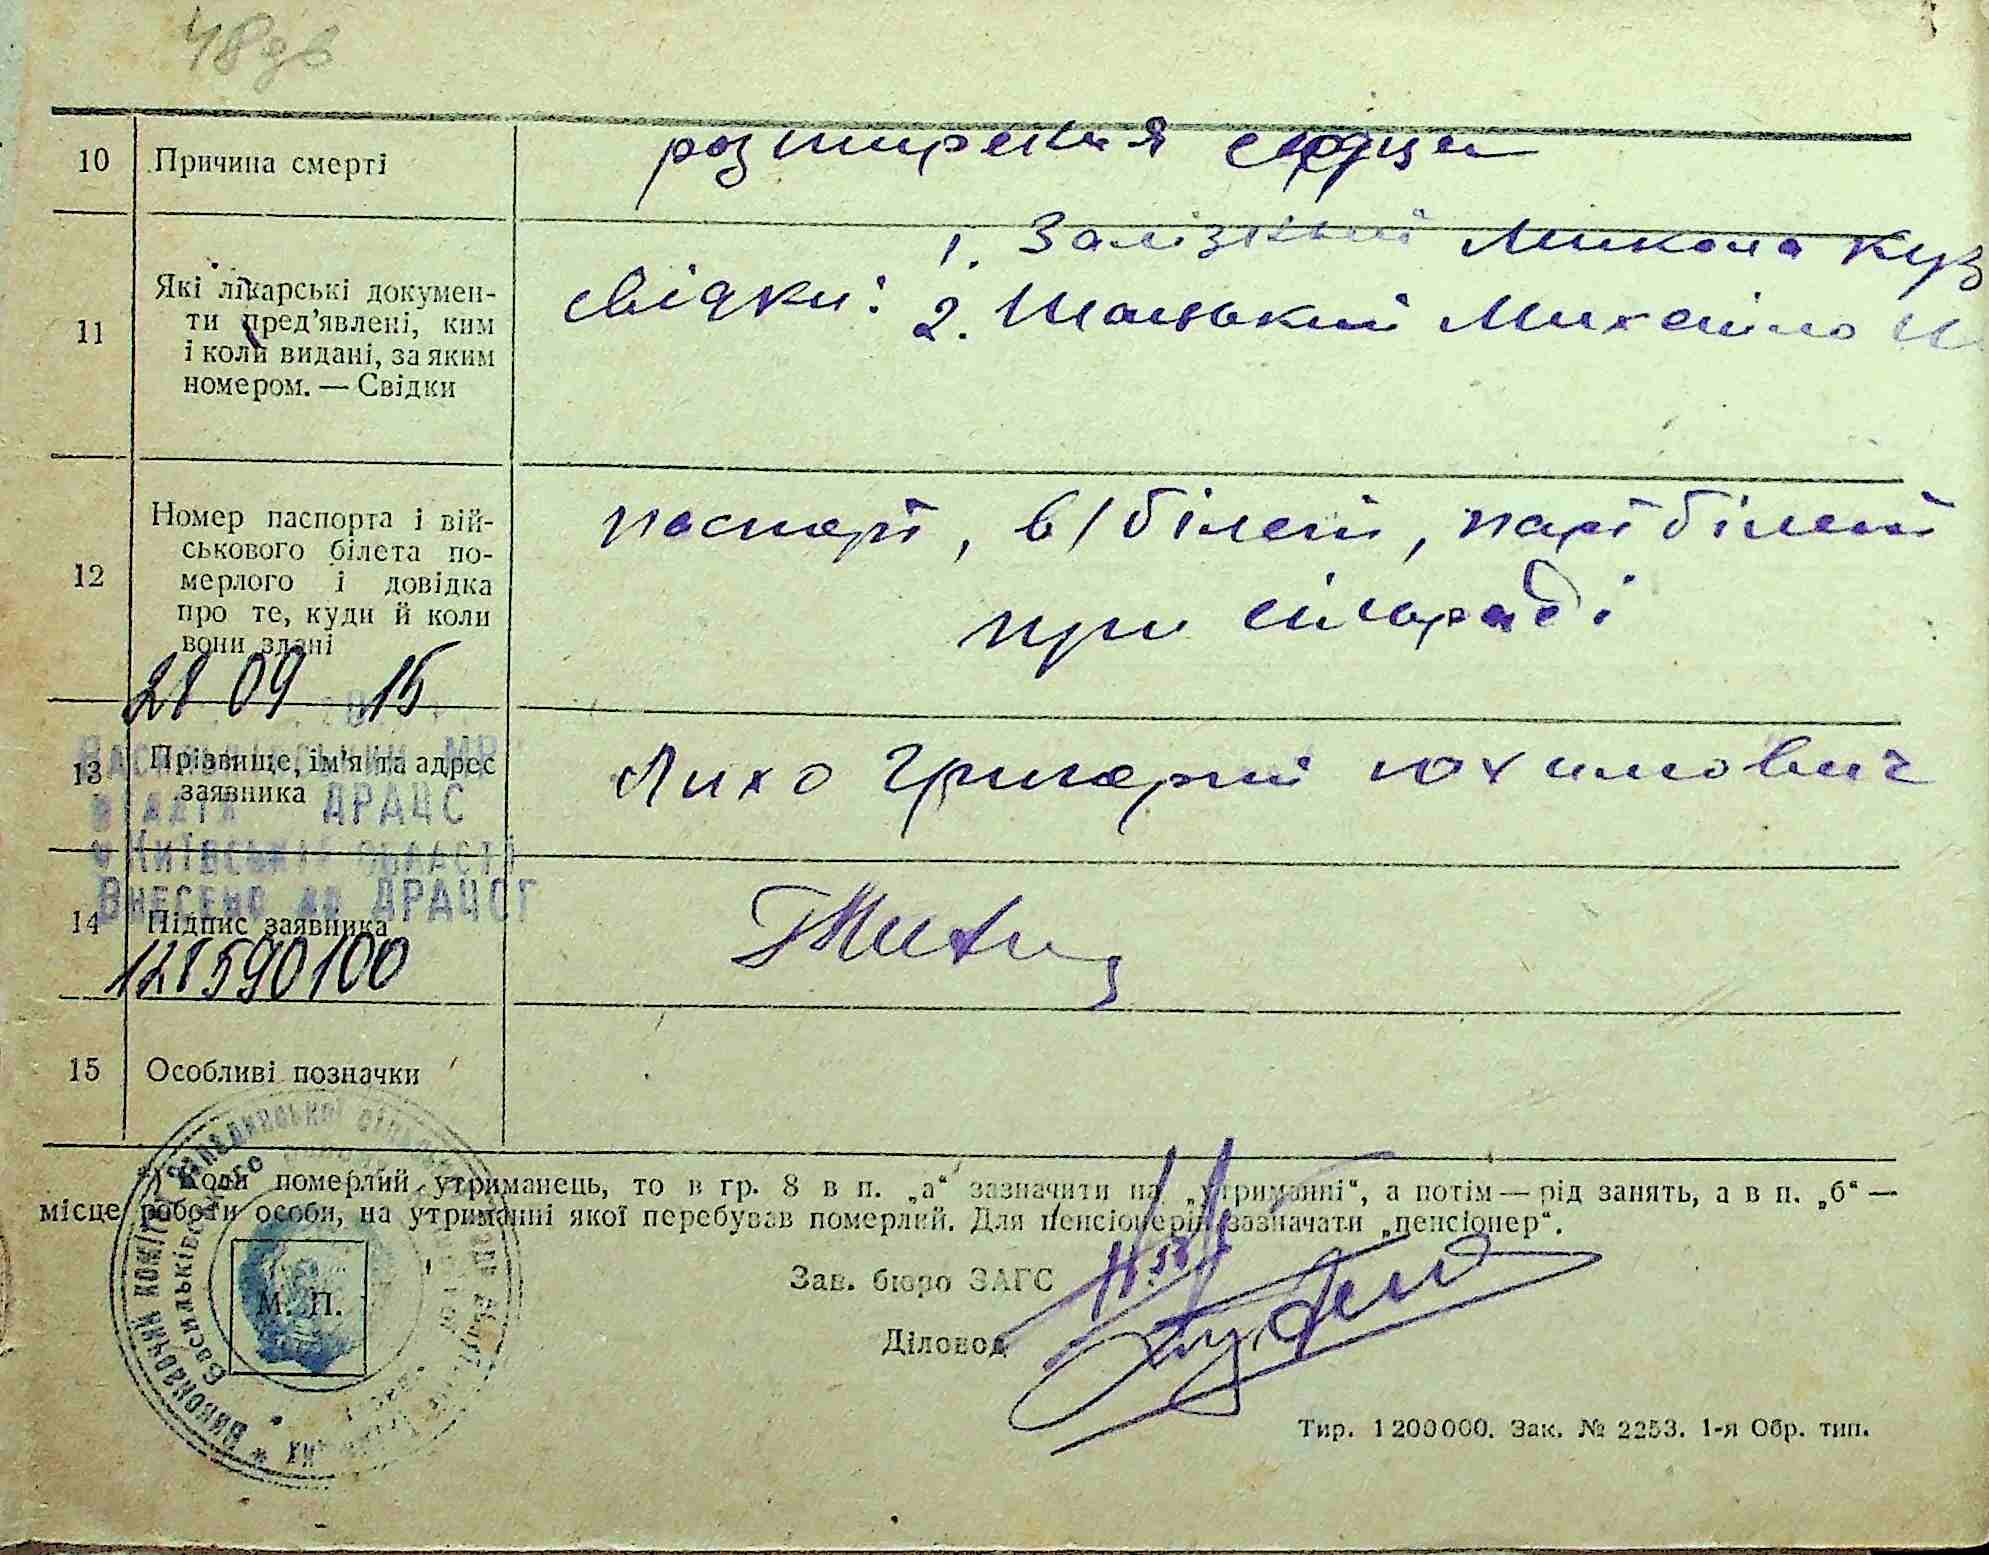 10 Причина смерті розширення серця
11 Які лікарські докумен-
ти пред'явлені, ким
і коли видані, за яким
номером. — Свідки
свідки: 1. Залізний Микола Куз
2. Шаський Михайло
12 Номер паспорта і вій-
ськового білета по-
мерлого і довідка
про те, куди й коли
вони здані
паспорт, в/білет, партбілет
при сільраді
28 09 15
13 Прізвище, ім'я та адрес
заявника
Лихо Григорій Юхимович
ДРАЦС
Київській області
Внесено до ДРАЦСГ
14 Підпис заявника
128590100
15 Особливі позначки
*) Коли померлий утриманець, то в гр. 8 в п. „а“ зазначити на „утриманні“, а потім — рід занять, а в п. „б“ —
місце роботи особи, на утриманні якої перебував померлий. Для пенсіонерів зазначати „пенсіонер“.
Виконавчий комітет
Васильківського
М. П.
Зав. бюро ЗАГС
Діловод
Тир. 1 200 000. Зак. № 2253. 1-я Обр. тип.